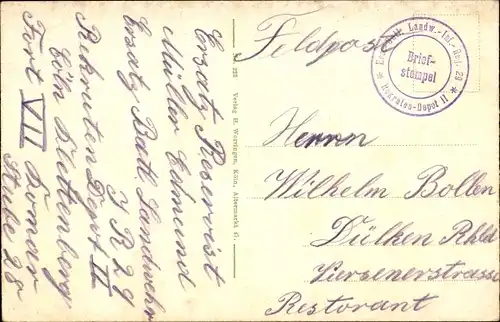 Feldpost
Ersatz Batl. Landw.-Inf.-Reg. 29
Brief-
stempel
* Rekruten-Depot II *
Herrn
Wilhelm Bollen
Dülken Rhld
Viersenerstrasse
Restorant
Ersatz Reservist
Müller Edmund
Ersatz Batl. Landwehr
J R 29
Rekruten Depot II
Cöln Klettenberg
Fort VII
Stube 28
Verlag H. Worringen, Köln, Altermarkt 67.